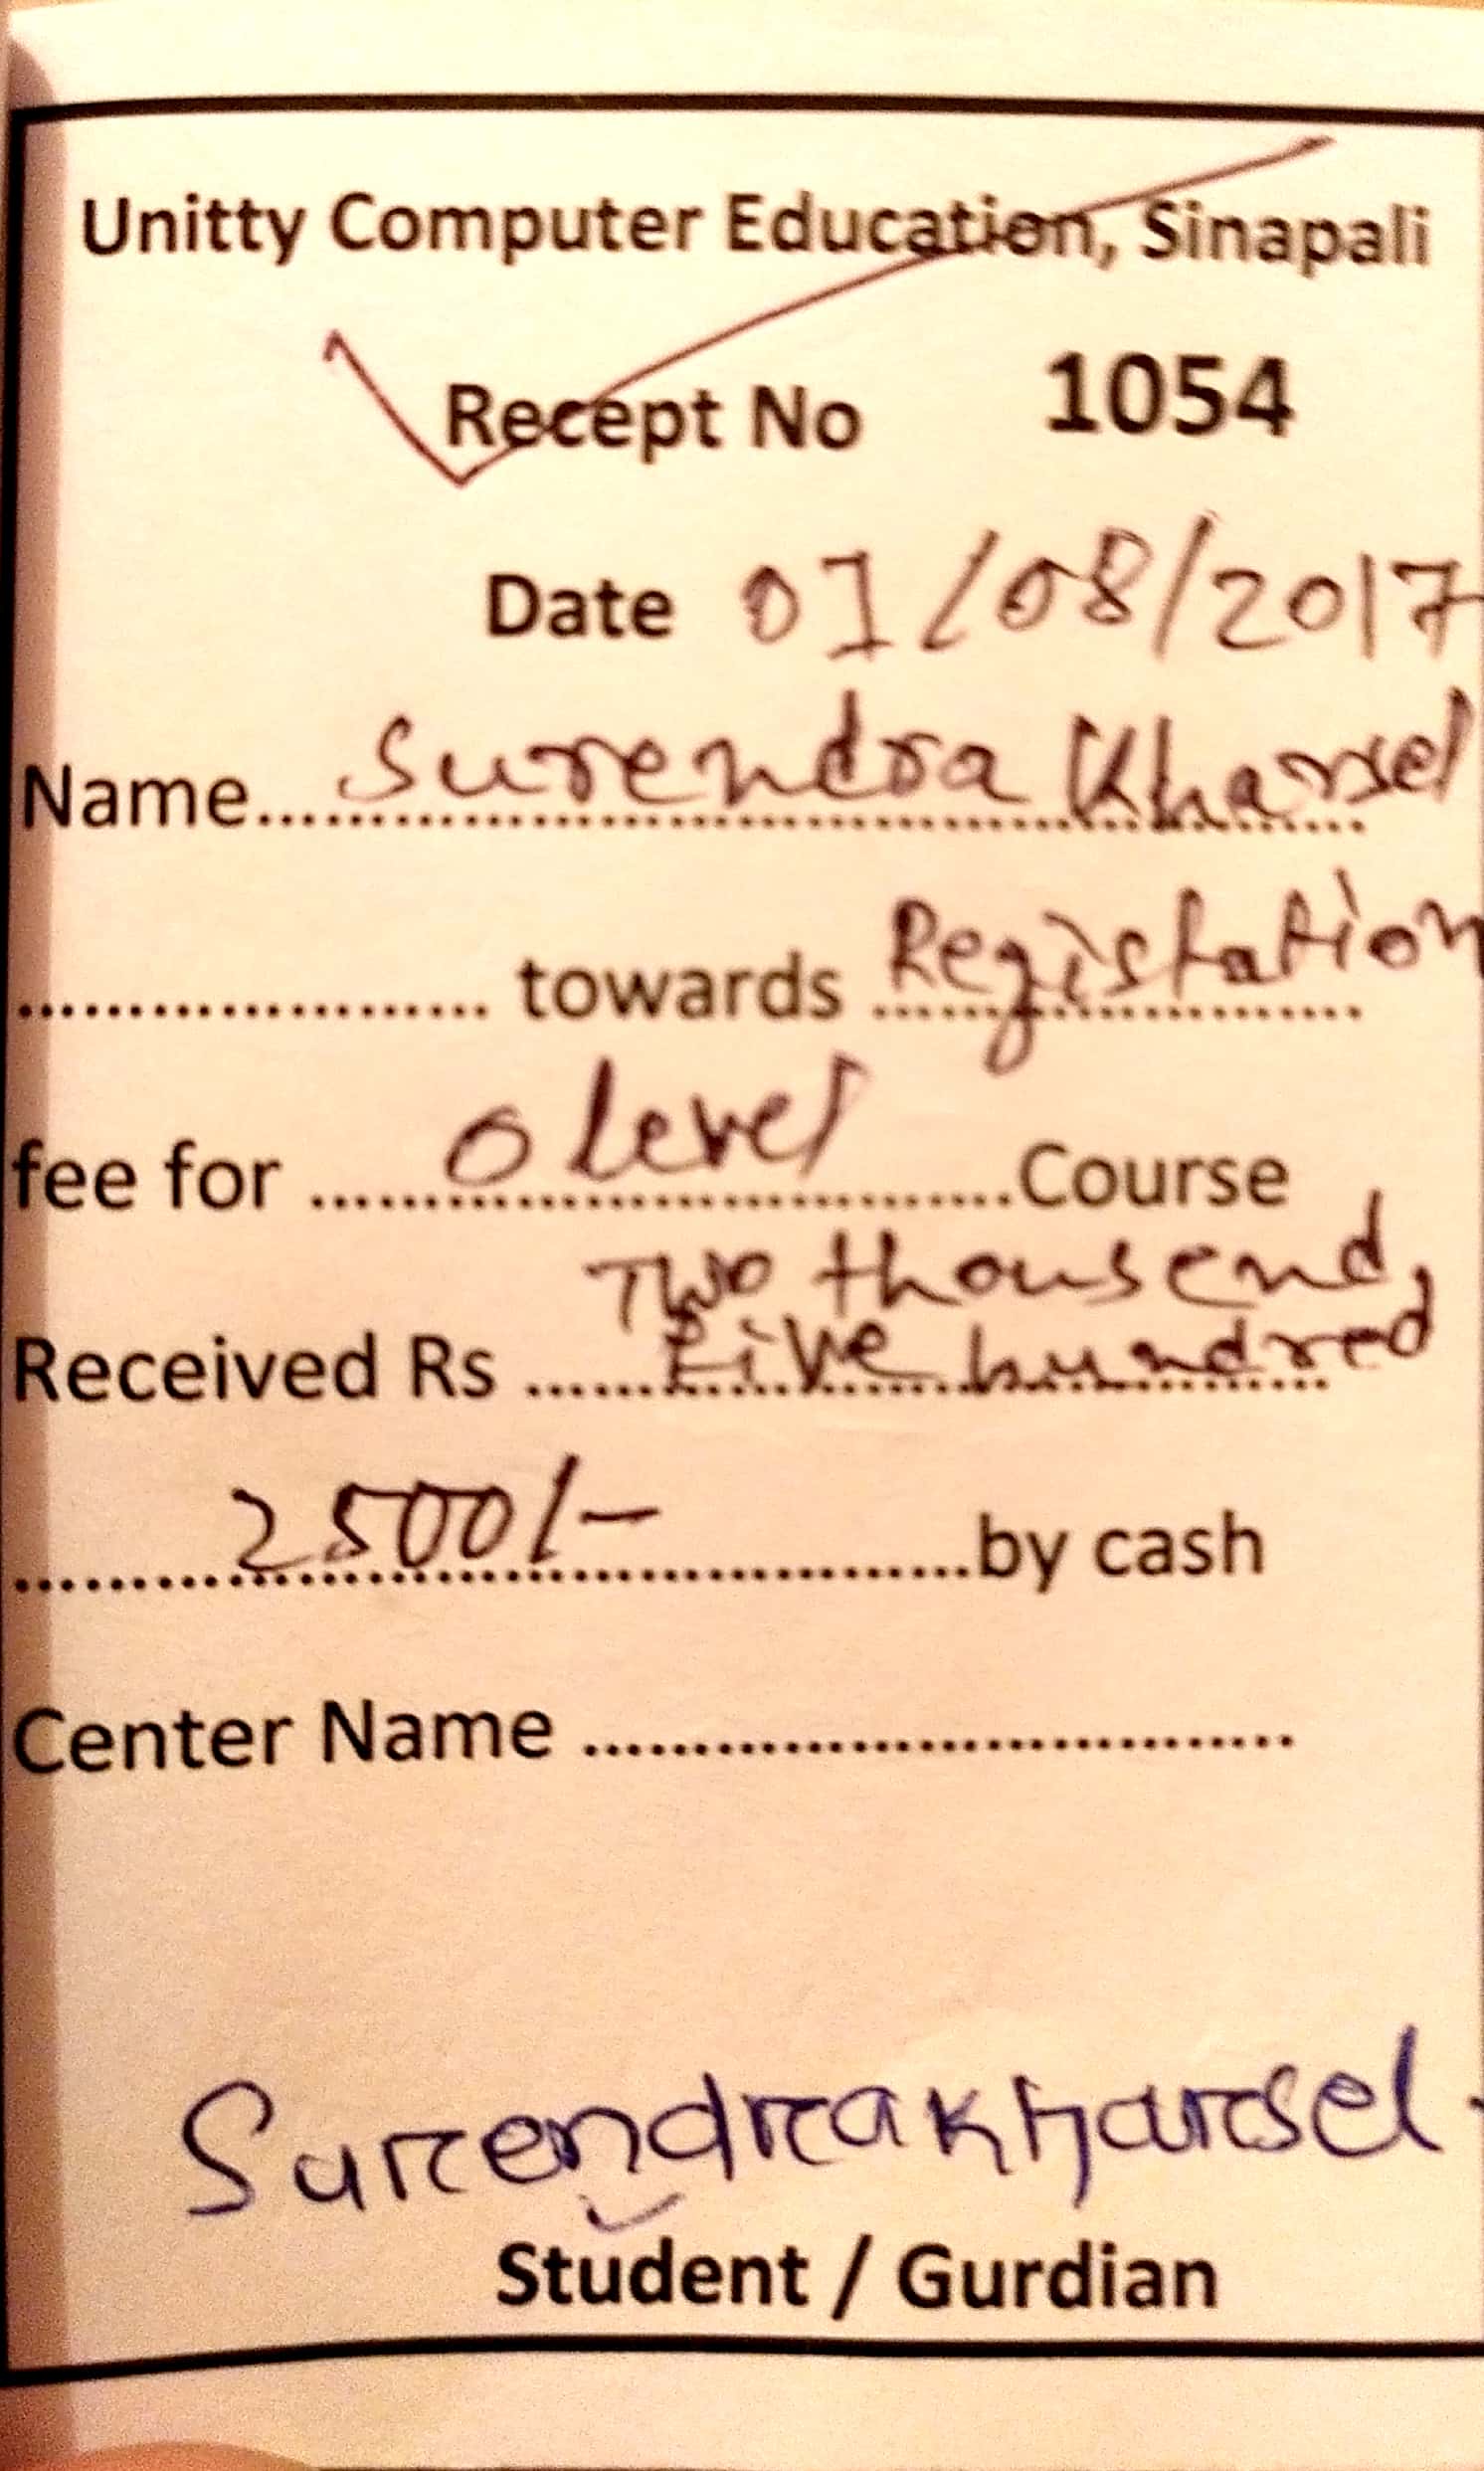 Unitty Computer Education, Sinapali
Recept No 1054
Date 01/08/2017
Name.......Surendra Kharsel
.................... towards Registation
fee for ......O level......Course
Two thousend,
Received Rs ......Five hundred
......2500/-......by cash
Center Name ................................
Surendra Kharsel
Student / Gurdian